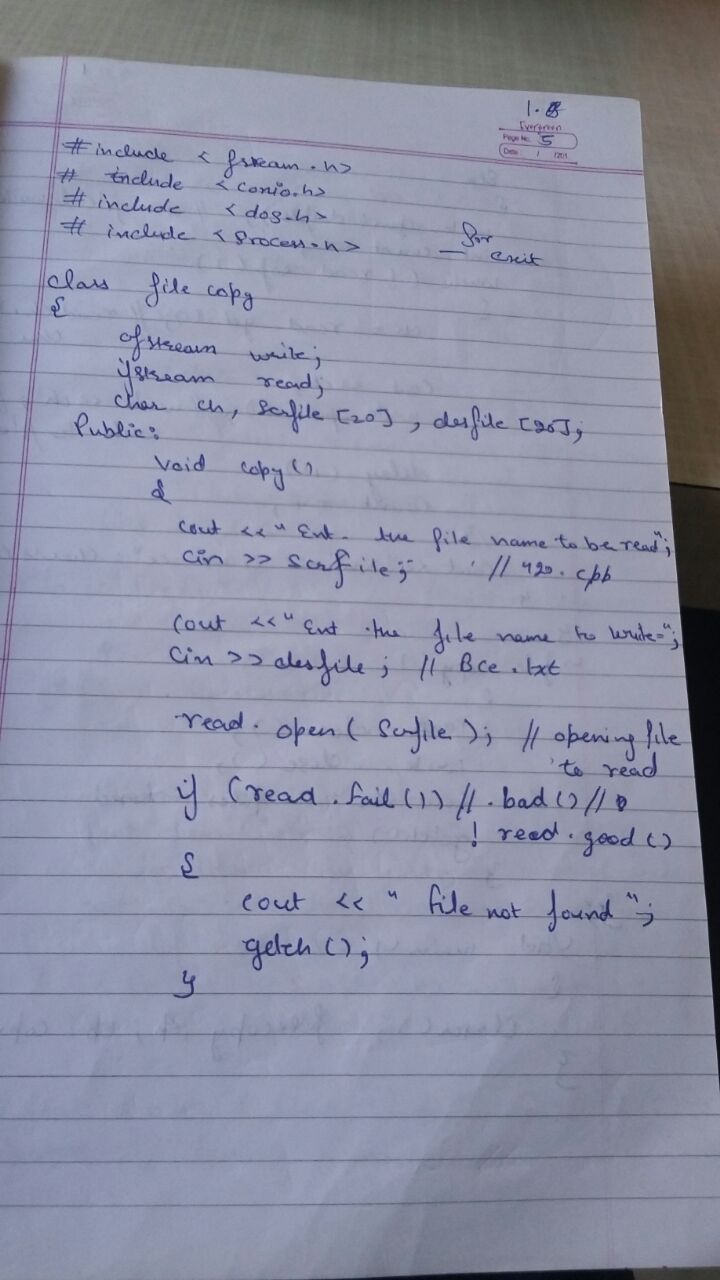 1.8
Evergreen
Page No. 5
Date: / /201
# include < fstream.h>
# include <conio.h>
# include <dos.h>
# include <process.h> — for exit
class file copy
{
ofstream write;
ifstream read;
char ch, scrfile [20], desfile [20];
Public:
void copy ()
{
cout << " Ent. the file name to be read";
cin >> scrfile; // 420.cpp
cout <<" Ent the file name to write=";
cin >> desfile ; // Bce.txt
read. open ( scrfile ); // opening file
to read
if (read.fail ()) //.bad () //
! read.good ()
{
cout << " file not found ";
getch ();
}